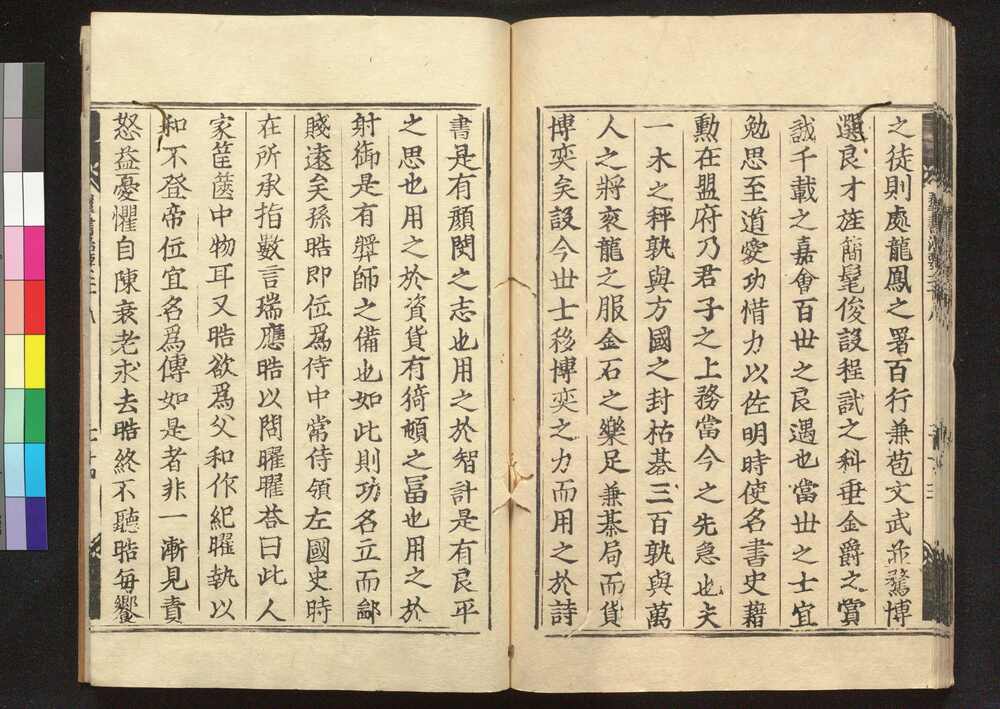 之徒則處龍鳳之署百行兼苞文武並騖博
選良才旌簡髦俊設程試之科垂金爵之賞
誠千載之嘉會百世之良遇也當世之士宜
勉思至道愛功惜力以佐明時使名書史籍
勲在盟府乃君子之上務當今之先急也夫
一木之枰孰與方國之封枯棊三百孰與萬
人之將衮龍之服金石之樂足兼棊局而貨
博奕矣設今世士移博奕之力而用之於詩
書是有顔閔之志也用之於智計是有良平
之思也用之於資貨有猗頓之冨也用之於
射御是有將師之備也如此則功名立而鄙
賤遠矣孫晧即位爲侍中常侍領左國史時
在所承指數言瑞應晧以問曜曜荅曰此人
家筐篋中物耳又晧欲爲父和作紀曜執以
和不登帝位宜名爲傳如是者非一漸見責
怒益憂懼自陳衰老求去晧終不聽晧每饗